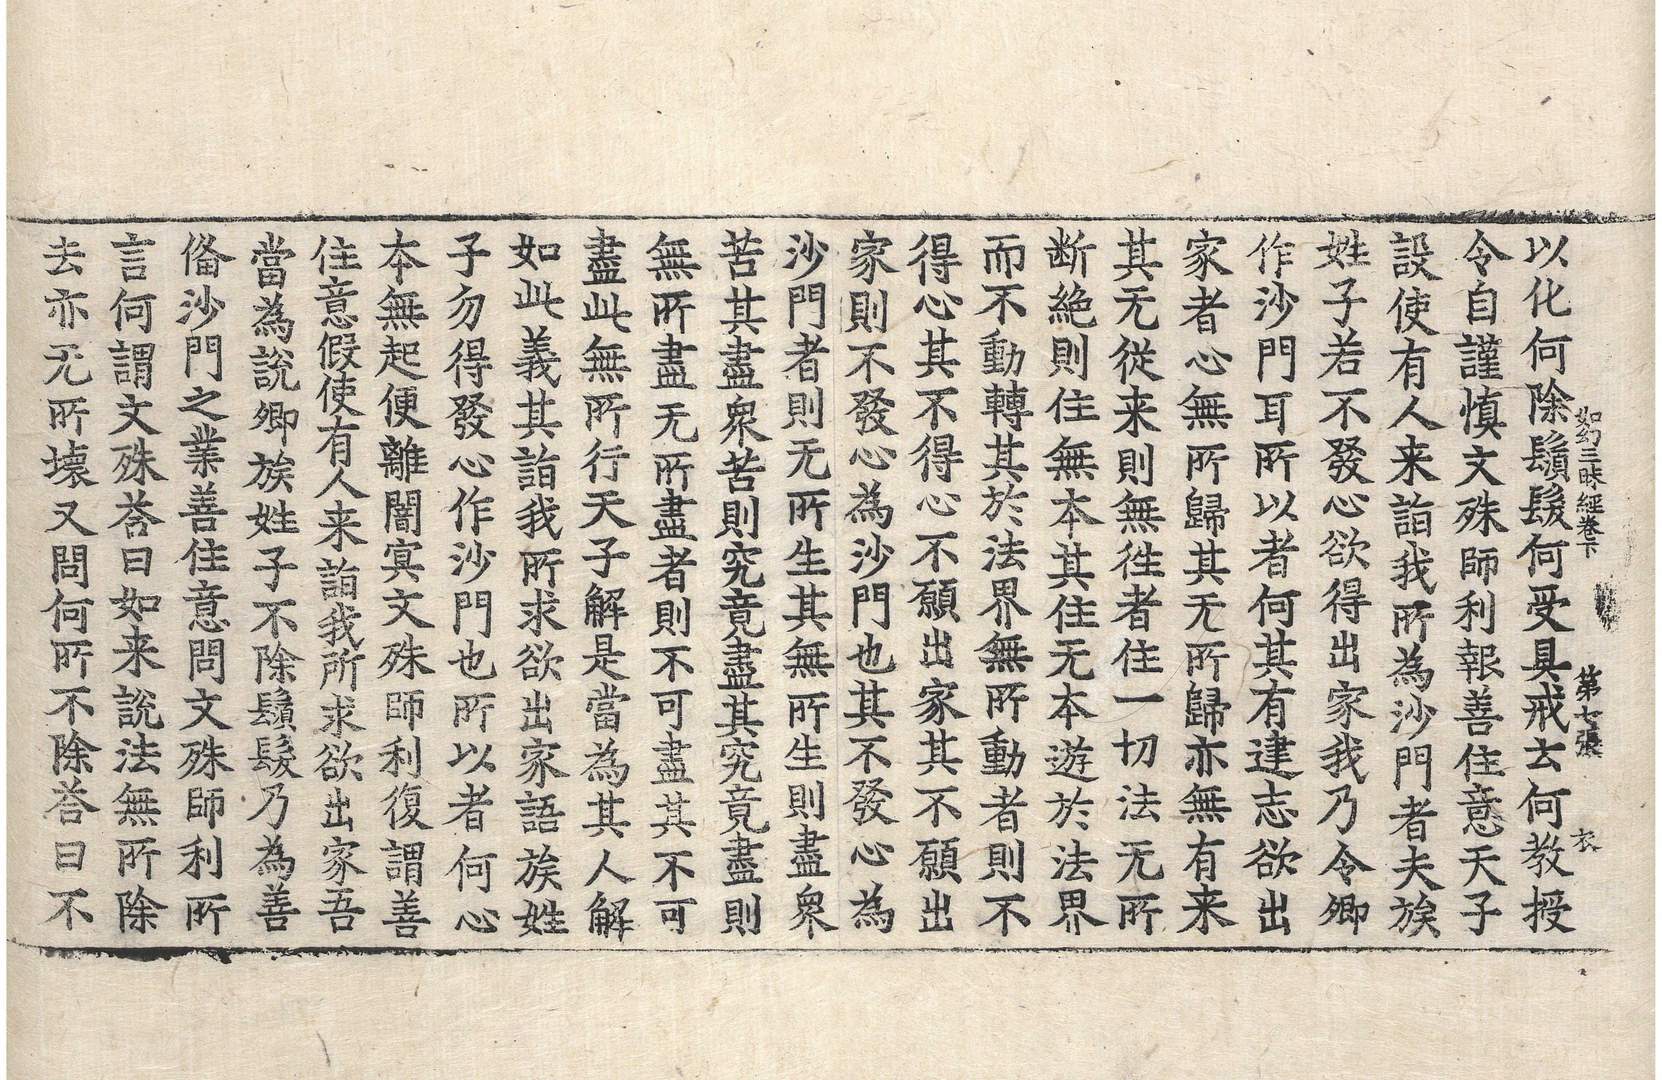 如幻三昧經卷下 第七張 衣
以化何除鬚髮何受具戒去何教授
令自謹慎文殊師利報善住意天子
設使有人来詣我所為沙門者夫族
姓子若不發心欲得出家我乃令卿
作沙門耳所以者何其有建志欲出
家者心無所歸其无所歸亦無有来
其无従来則無徃者住一切法无所
断絶則住無本其住无本遊於法界
而不動轉其於法界無所動者則不
得心其不得心不願出家其不願出
家則不發心為沙門也其不發心為
沙門者則无所生其無所生則盡衆
苦其盡衆苦則究竟盡其究竟盡則
無所盡无所盡者則不可盡其不可
盡此無所行天子解是當為其人解
如此義其詣我所求欲出家語族姓
子勿得發心作沙門也所以者何心
本無起便離闇冥文殊師利復謂善
住意假使有人来詣我所求欲出家吾
當為說卿族姓子不除鬚髮乃為善
俻沙門之業善住意問文殊師利所
言何謂文殊荅曰如来說法無所除
去亦无所壞又問何所不除荅曰不